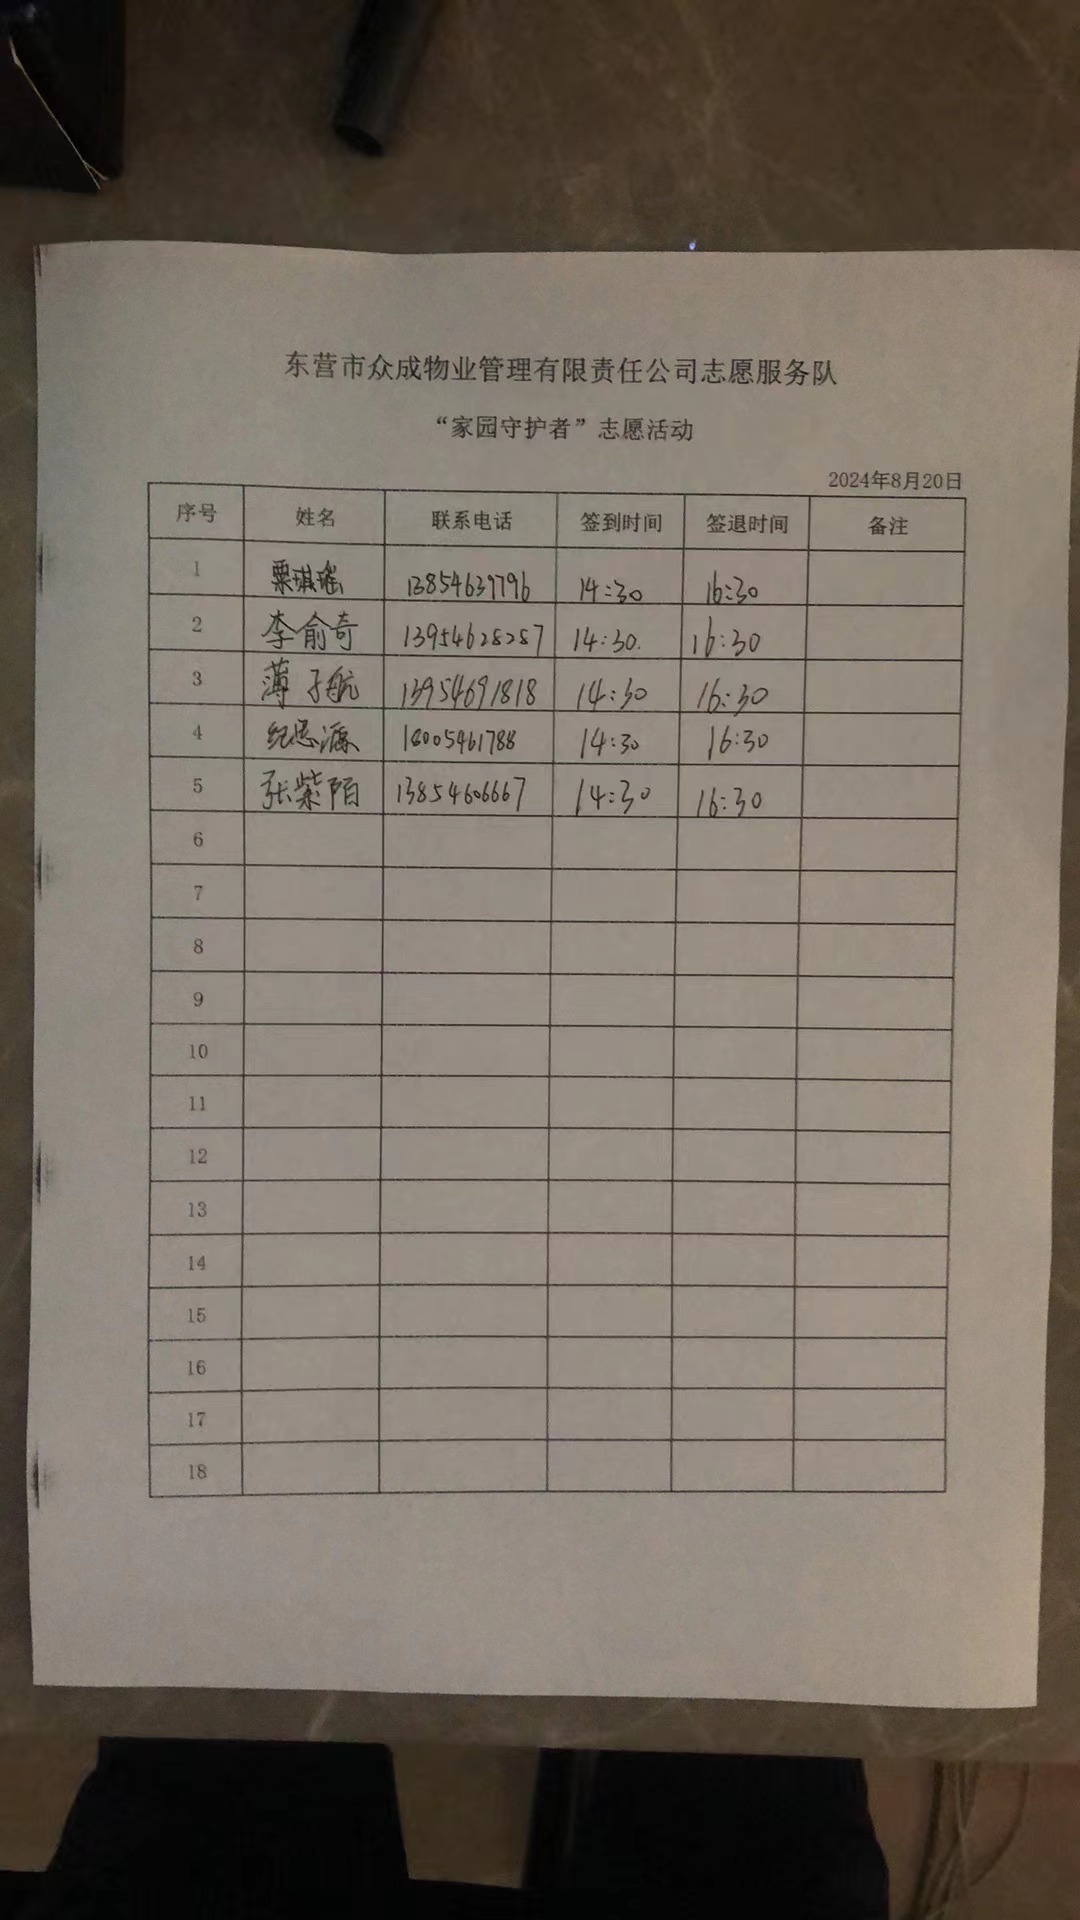 东营市众成物业管理有限责任公司志愿服务队
“家园守护者”志愿活动
2024年8月20日
序号 姓名 联系电话 签到时间 签退时间 备注
1 粟琪瑶 13854639796 14:30 16:30
2 李俞奇 13954628287 14:30. 16:30
3 薄子航 13954691818 14:30 16:30
4 纪思源 18005461788 14:30 16:30
5 张紫陌 13854606667 14:30 16:30
6
7
8
9
10
11
12
13
14
15
16
17
18